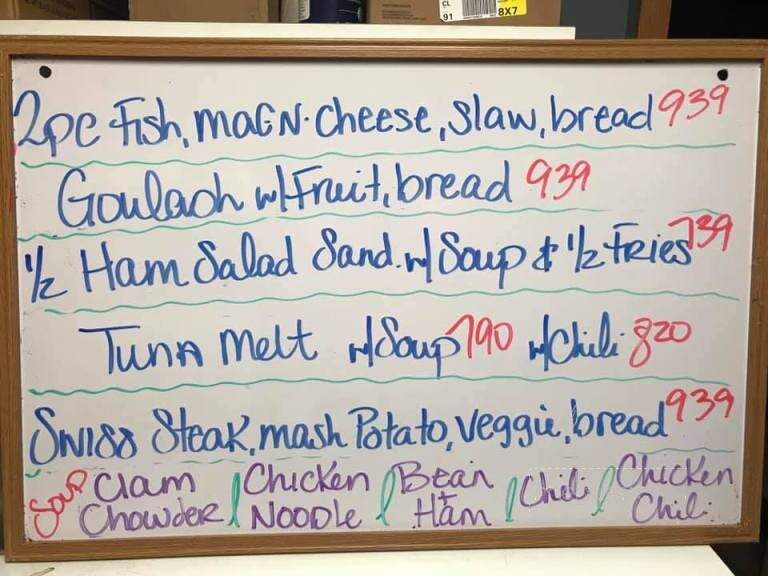 CL
91
8X7
2pc Fish, mac N. Cheese, Slaw, bread 939
Goulash w/ Fruit, bread 939
1/2 Ham Salad Sand. w/ Soup & 1/2 Fries 739
Tuna Melt w/ Soup 790 w/ Chili 820
Swiss Steak, mash Potato, Veggie, bread 939
Soup Clam Chowder / Chicken Noodle / Bean + Ham / Chili / Chicken Chili